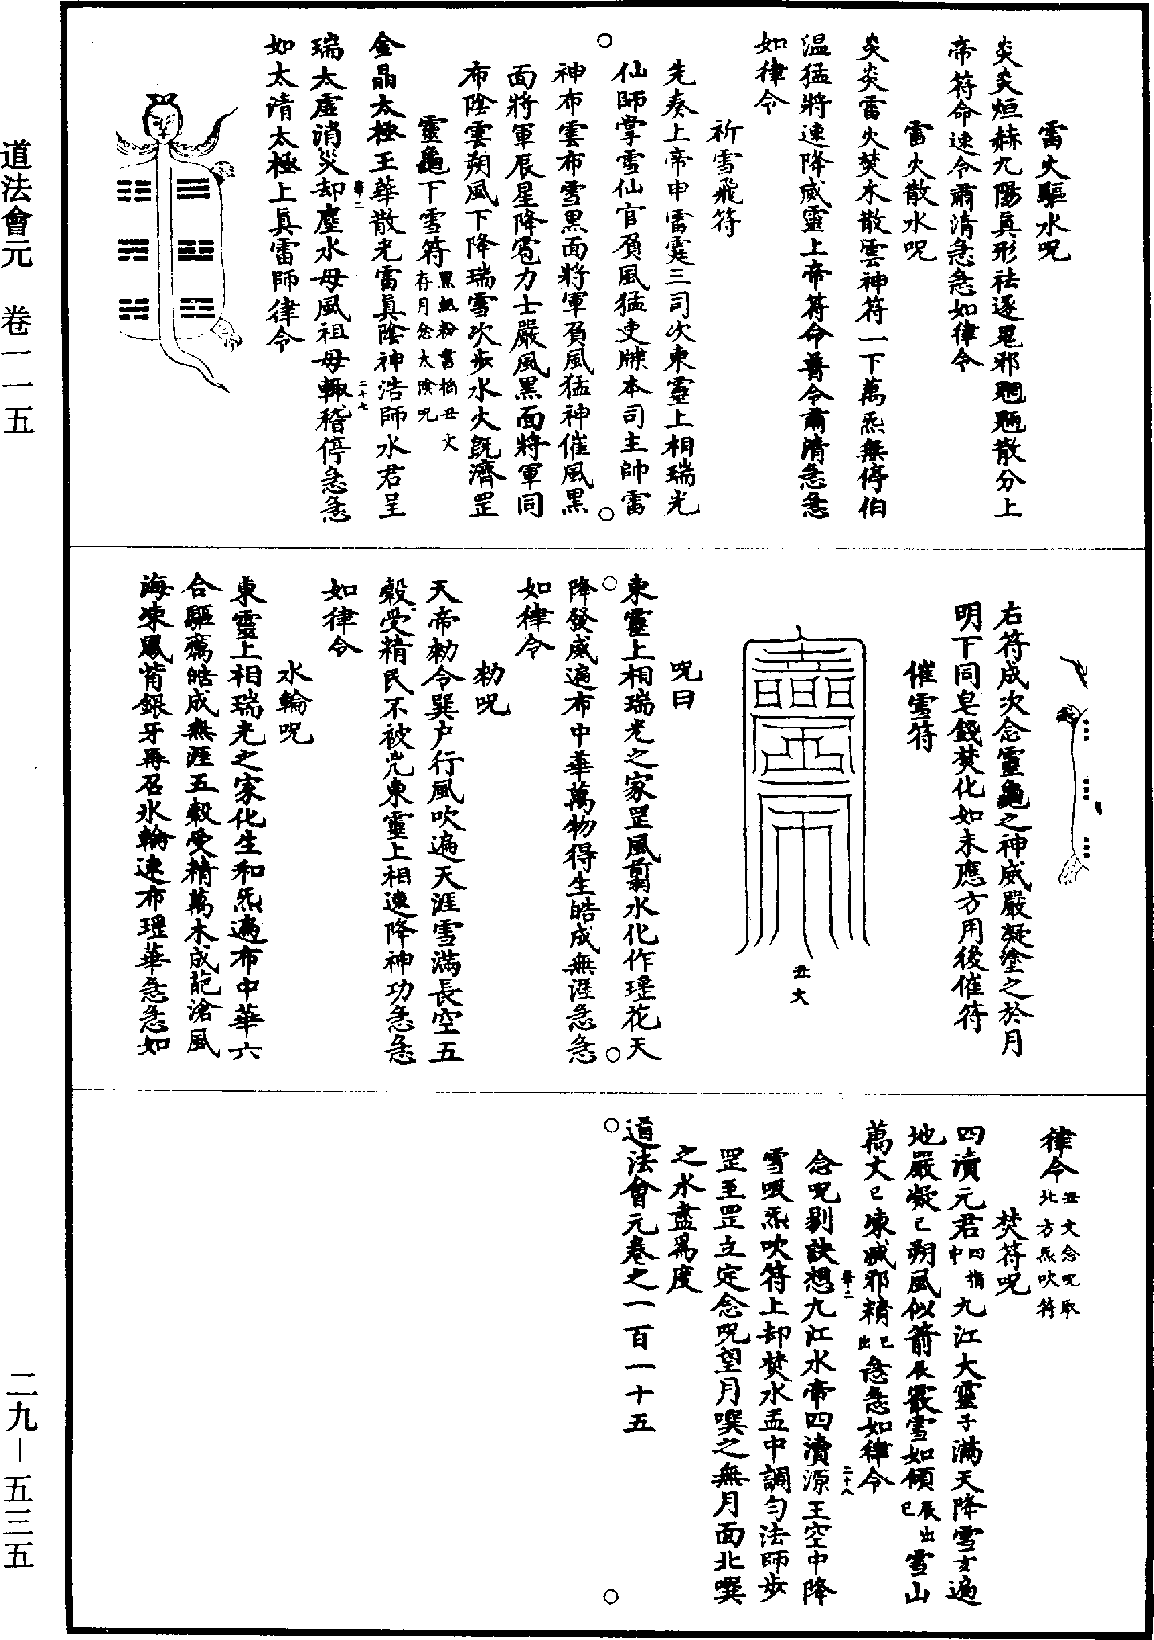 雷火驅水呪
炎炎烜赫九陽真形祛逐鬼邪魍魎散分上
帝符命速令肅清急急如律令
雷火散水呪
炎炎雷火焚水散雲神符一下萬炁無停伯
溫猛將速降威靈上帝符命普令肅清急急
如律令
祈雪飛符
先奏上帝申雷霆三司次東靈上相瑞光
仙師掌雪仙官頁風猛吏牒本司主帥雷
神布雲布雪黑面將軍頁風猛神催風黑
面將軍辰星降雹力士嚴風黑面將軍同
布陰雲朔風下降瑞雪次步水火既濟罡
靈龜下雪符黑紙粉書掐丑文存月念太陰呪
金晶太極王華散光雷真陰神浩師水君呈
瑞太虛消災却塵水母風祖毋輒稽停急急
如太清太極上真雷師律令
右符成次念靈龜之神威嚴凝塗之於月
明下同皂錢焚化如未應方用後催符
催雪符
丑文
呪曰
東靈上相瑞光之家罡風翦水化作瑤花天
降發威遍布中華萬物得生皓成無涯急急
如律令
勑呪
天帝勑令巽户行風吹遍天涯雪滿長空五
穀受精民不被兇東靈上相速降神功急急
如律令
水輪呪
東靈上相瑞光之家化生和炁遍布中華六
合驅癘皓成無涯五穀受精萬木成葩滄風
海凍鳳觜銀牙再召水輪速布瑤華急急如
律令丑文念呪取北方炁吹符
焚符呪
四瀆元君四指中九江大靈子滿天降雪亥遍
地嚴凝巳朔風似箭辰霰雪如傾辰出巳雪山
萬丈巳凍滅邪精巳出急急如律令
念呪剔訣想九江水帝四瀆源王空中降
雪吸炁吹符上却焚水盂中調勻法師步
罡至罡立定念呪望月噀之無月面北噀
之水盡爲度
道法會元卷之一百一十五
道法會元　卷一一五
二九—五三五